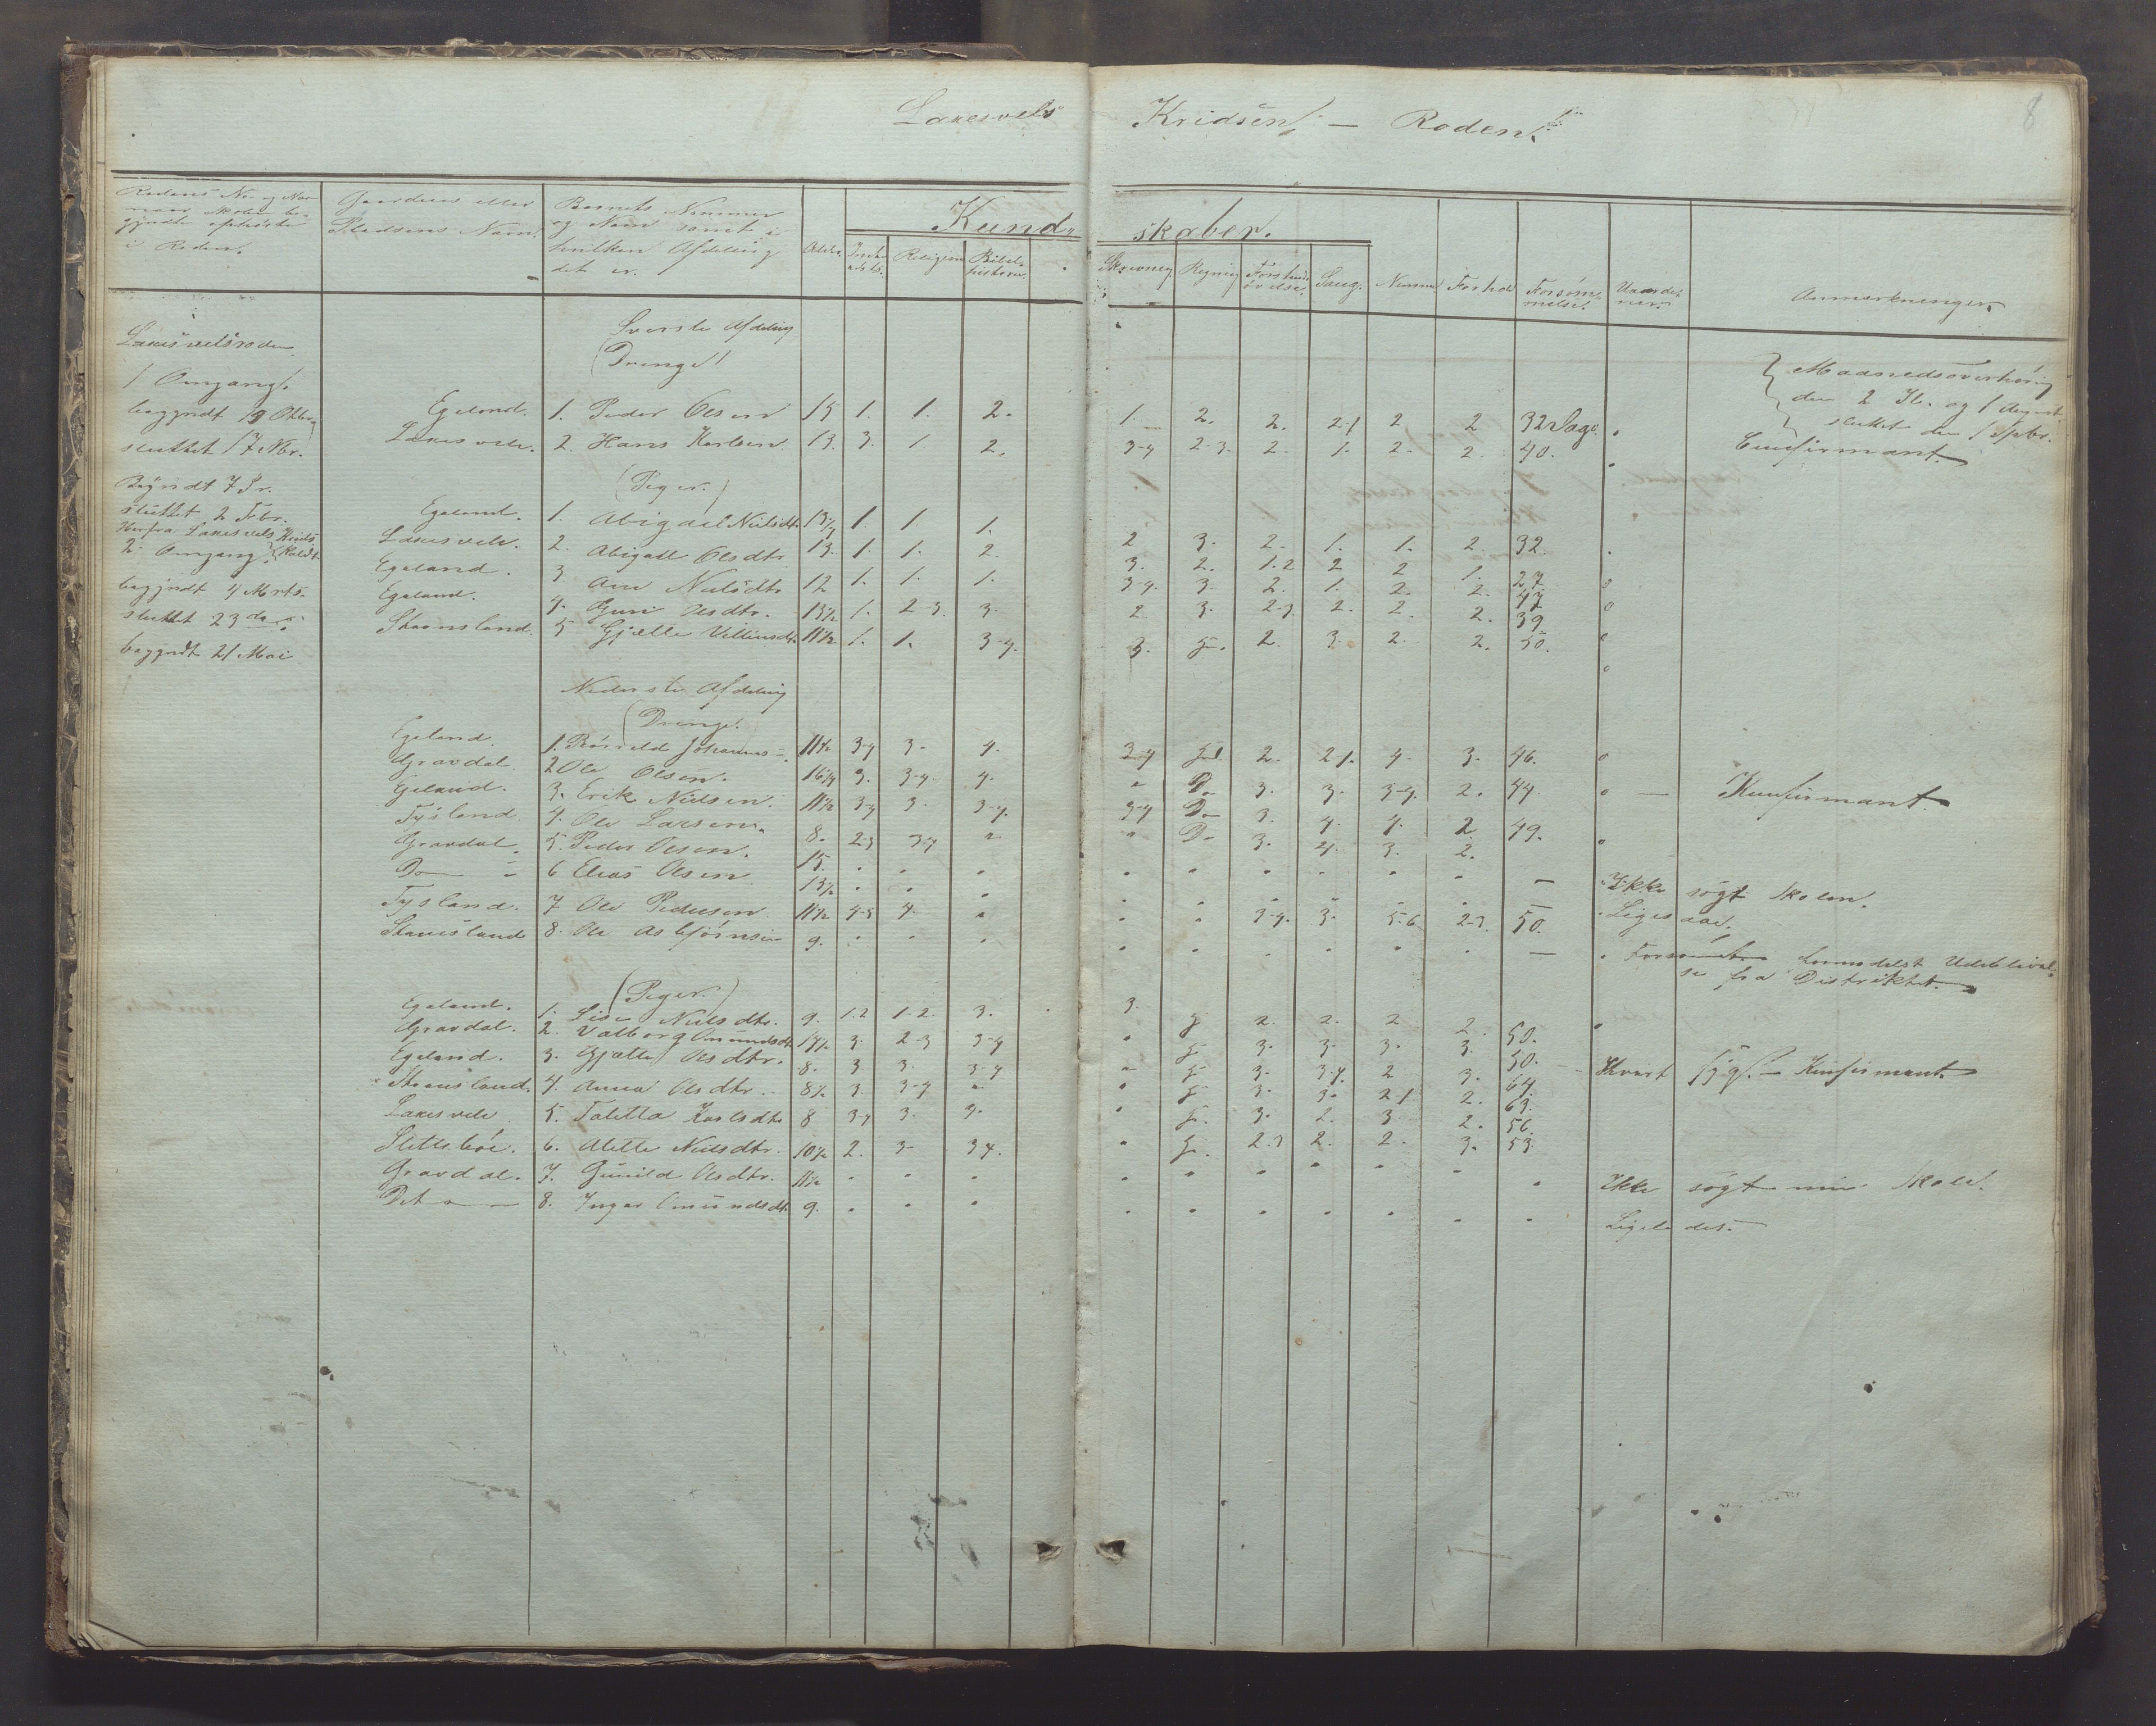 8
Laxesvels Kridsen — Roden.
Rodens No og Naar
naar Skolen be-
gyndte
i Roden.
Gaardens eller
Pladsens Navn.
Barnets Nummer
og Navn samt i
hvilken Afdeling
det er.
Alder.
Kund- skaber.
Religion
Bibel-
historie.
Skrivning
Regning
Forstands-
övelse.
Sang.
Nummer
Forhold
Forsöm-
melse.
Anmærkninger.
Laxesvelsroden
Överste Afdeling
(Drenge)
1 Omgang.
Maanedsoverhöring
den 2 Jl. og 1 August
sluttet den 1 Spbr.
begyndt 19 Oktbr. Egeland. 1. Peder Olsen 15 1. 1. 2. 1. 2. 2. 2-1 2 2 32 Dage.
sluttet 17 Nbr. Laxesvele. 2. Hans Karlsen 13. 3. 1 2. 3-4 2-3. 2. 1. 2. 2. 40. Confirmant.
(Piger.)
Begyndt 7 Jr.
sluttet 2 Febr. Egeland. 1. Abigael Nielsdtr. 13½ 1. 1. 1. 2 3. 2. 1. 1. 2. 32.
Herfra Laxesvels Krids
2 Omgang. Laxesvele. 2. Abigael Olsdtr 13. 1. 1. 2. 3. 2. 1.2 2 2 1. 27.
Egeland. 3 Ane Nielsdtr 12 1. 1. 1. 3-4. 3. 2. 1. 2. 2. 47
begyndt 4 Marts. Egeland. 4. Guri Olsdtr. 13½ 1. 2-3. 3. 2 3. 2-3. 2. 2. 2. 39
sluttet 23 do Skaansland. 5 Gjætle Villumsdtr. 11½ 1. 1. 3-4. 3. 2. 3. 2. 2. 50.
begyndt 21 Mai
Nederste Afdeling
(Drenge.
Egeland. 1. Johannes 11½ 3-4 3. 4. 3-4 2. 2 1. 4. 3. 46.
Gravdal. 2 Ole Olsen. 16¼ 3. 3-4. 4. " Do 3. 3. 3-4. 2. 44. — Kunfirmant.
Egeland. 3. Erik Nielsen. 11½ 3-4 3. 3-4. 3-4 Do 3. 4. 4. 2 49.
Tysland. 4. Ole Larsen. 8. 2-3 3-4 " " Do 3. 4. 3. 2.
Gravdal. 5. Peder Olsen. 15. — Ikke sögt Skolen.
Do 6 Elias Olsen 13½ — Ligesaa.
Tysland. 7 Ole Pedersen 11½ 4-5 4. 3-4. 3. 5-6 2-3. 50.
Skaansland 8. Ole Asbjörnsen 9. — formedelst Udeblivel-
se fra Distriktet.
(Piger.)
Egeland. 1. Lise Nielsdtr. 9. 1.2 1-2. 3. 3. 2. 2. 2 2. 50.
Gravdal. 2. Valborg Omundsdtr. 3. 2-3 3-4 3. 3. 3. 3. 50. Kunfirmant.
Egeland. 3. Gjætle Olsdtr. 8. 3 3. 3-4 3. 3-4. 2 3. 64.
Skaansland. 4. Anna Olsdtr. 8½ 3 3-4 3. 3. 2 1 2. 63.
Laxesvele. 5. Talette Karlsdtr. 8 3-4 3. 3. 3. 2. 3. 2. 56.
Sletteböe. 6. Alette Nielsdtr. 10½ 2. 3- 3 4. 2.3 2. 2. 3. 53.
Gravdal. 7. Gunild Olsdtr. 11½ Ikke sögt min Skole.
Dito 8. Inger Omundsdtr 9. Ligeledes.